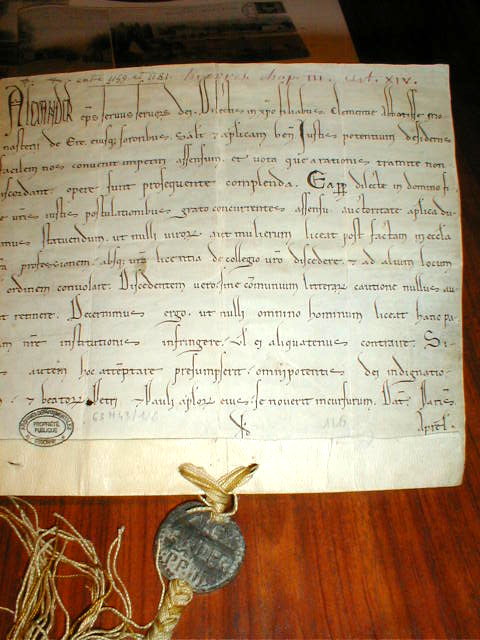 entre 1159 et 1181. chap III. art. XIV.
ALEXANDER eps servus servoz dei. Dilectis in xpo filiabus Clementie Abbatisse mo
nasterii de Ere, eiusq; sororibus, salt & aplicam ben. Justis potentium desideriis
facilem nos convenit impertiri assensum, et vota que a rationis tramite non
iscordant opere sunt prosequente complenda. Eapp dilecte in domino fi
uris iustis postulationibus grato concurrentes assensu, auctoritate aplica du
imus statuendum. ut nulli viroz aut mulierum liceat post factam in eccla
professionem, absq; licentia de collegio discedere, & ad alium locum
ordinem convolare. Discedentem vero sine comunium litteraz cautione nullus au
t retinere. Decernimus ergo. ut nulli omnino hominum liceat hanc pa
am nre institutionis infringere, vl ei aliquatenus contraire. Si
s autem hoc attemptare presumpserit. omnipotentis dei indignatio
& beatoz Petri & Pauli aploz eius se noverit incursurum. Dat.
April.
ARCHIVES DEPARTEMENTALES
PROPRIÉTÉ PUBLIQUE
ESSONNE
63H43/1
ALEXANDER
PP III